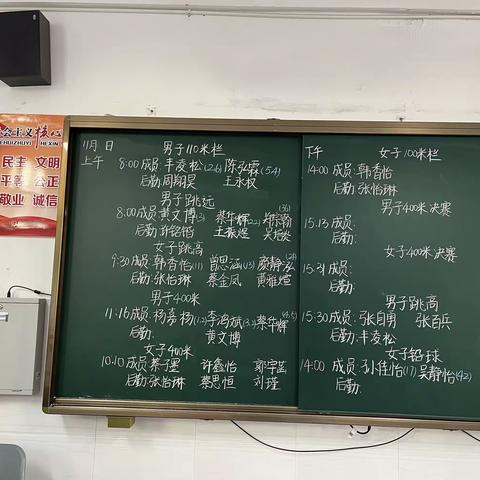 会主义核心
HEHUIZHUYI HEXIN
民主 文明
平等 公正
敬业 诚信
11月 日
上午
男子110米栏
8:00 成员:丰凌松(2.6) 陈弘霖(5.4)
后勤:周翔昊 王永权
男子跳远
8:00 成员:黄文博(3) 蔡华辉(2.2)
后勤:许铭锴 王振煜
女子跳高
9:30 成员:韩杏怡(11) 曾思涵(13) 颜静泓
后勤:张怡琳 蔡金凤 黄雅煊
男子400米
11:16 成员:杨嘉杨(1.2) 李鸿斌(3.2) 蔡华辉
黄文博
女子400米
10:10 成员:蔡子墨 许鑫怡 郭宇菡
后勤:张怡琳 蔡思恒 刘瑾
下午
女子100米栏
14:00 成员:韩杏怡
后勤:张怡琳
男子400米决赛
15:13 成员:
后勤:
女子400米决赛
15:21 成员:
后勤:
男子跳高
15:30 成员:张自勇 张百兵
后勤:丰凌松
女子铅球
14:00 成员:孙佳怡(17) 吴静怡(42)
后勤: